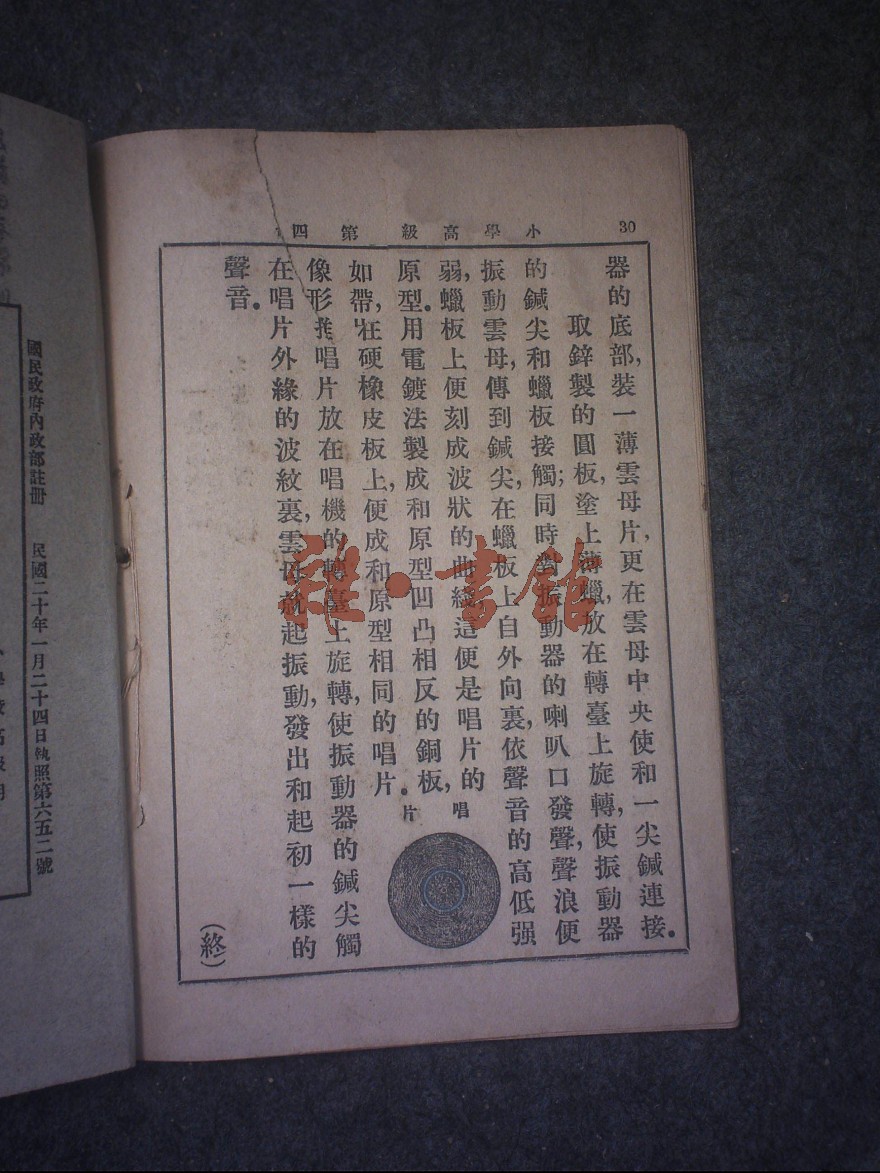 小學高級 第四 30
器的底部，裝一薄雲母片，更在雲母中央使和一尖鍼連接。
取鋅製的圓板，塗上薄蠟，放在轉臺上旋轉，使振動器
的鍼尖和蠟板接觸；同時對振動器的喇叭口發聲，聲浪便
振動雲母，傳到鍼尖，在蠟板上自外向裏，依聲音的高低强
弱，蠟板上便刻成波狀的曲綫，這便是唱片的
原型。用電鍍法製成和原型凹凸相反的銅板，
如帶，在硬橡皮板上，便成和原型相同的唱片。
像形 唱片放在唱機的轉臺上旋轉，使振動器的鍼尖觸
在唱片外緣的波紋裏，雲母就起振動，發出和起初一樣的
聲音。
（終）
唱片
雜·書館
國民政府內政部註冊 民國二十年一月二十四日執照第六五二號